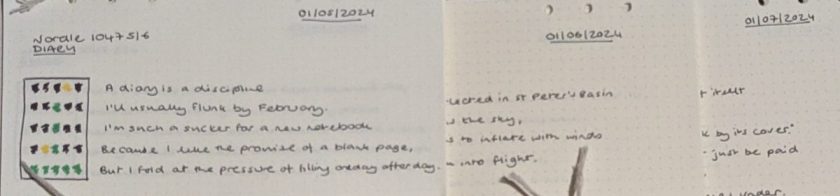 01/05/2024
Wordle 1047 5/6
DIARY
A diary is a discipline
I'll usually flunk by February.
I'm such a sucker for a new notebook
Because I like the promise of a blank page,
But I fold at the pressure of filling one day after day.
01/06/2024
in St Peter's Basin
the sky,
to inflate with winds
into flight.
01/07/2024
itself
by its cover."
just be paid
under.